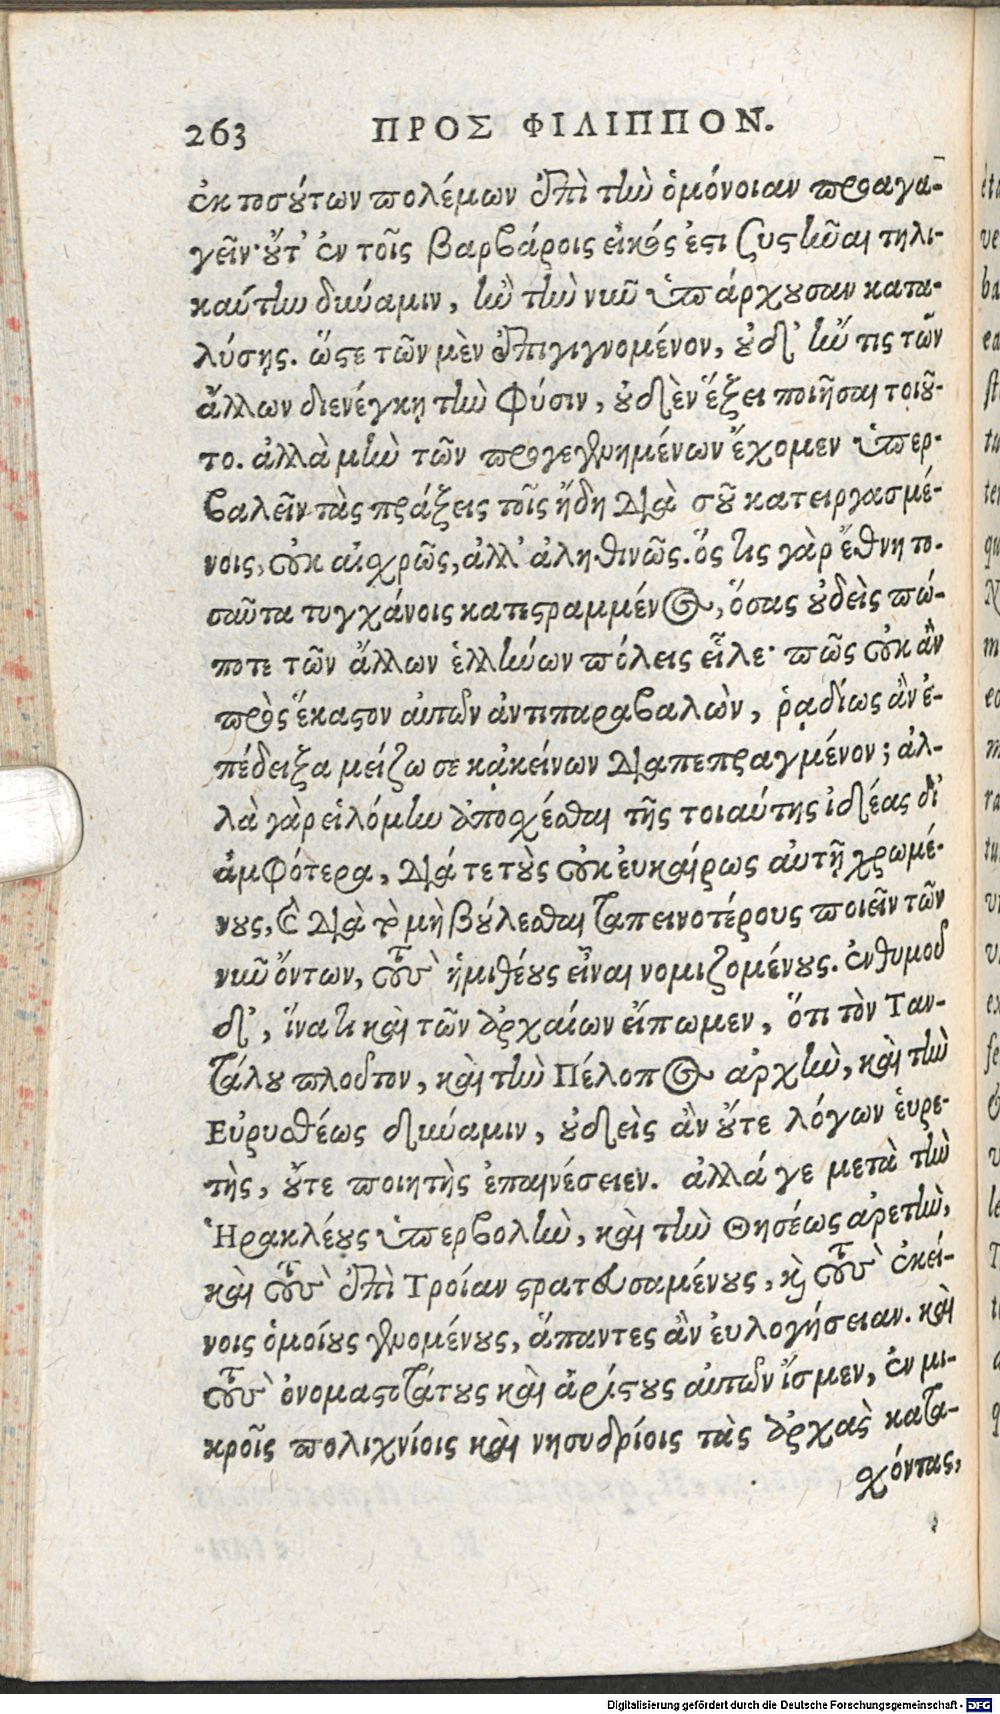 263 ΠΡΟΣ ΦΙΛΙΠΠΟΝ.
ἐκ τοσούτων πολέμων ἐπὶ τὴν ὁμόνοιαν προαγα-
γεῖν· οὔτ' ἐν τοῖς βαρβάροις εἰκός ἐστι συστῆναι τηλι-
καύτην δύναμιν, ἢν τὴν νῦν ὑπάρχουσαν κατα-
λύσῃς. ὥστε τῶν μὲν ἐπιγιγνομένον, οὐδ' ἤν τις τῶν
ἄλλων διενέγκῃ τὴν φύσιν, οὐδὲν ἕξει ποιῆσαι τοιοῦ-
το. ἀλλὰ μὴν τῶν προγεγενημένων ἔχομεν ὑπερ-
βαλεῖν τὰς πράξεις τοῖς ἤδη διὰ σοῦ κατειργασμέ-
νοις, οὐκ αἰχρῶς, ἀλλ' ἀληθινῶς. ὅς τις γὰρ ἔθνη το-
σαῦτα τυγχάνοις κατεστραμμένος, ὅσας οὐδεὶς πώ-
ποτε τῶν ἄλλων ἑλλήνων πόλεις εἷλε· πῶς οὐκ ἂν
πρὸς ἕκαστον αὐτῶν ἀντιπαραβαλὼν, ῥᾳδίως ἂν ἐ-
πέδειξα μείζω σε κᾀκείνων διαπεπραγμένον; ἀλ-
λὰ γὰρ εἱλόμην ἀποσχέσθαι τῆς τοιαύτης ἰδέας δι'
ἀμφότερα, διά τε τοὺς οὐκ εὐκαίρως αὐτῇ χρωμέ-
νους, καὶ διὰ τὸ μὴ βούλεσθαι ταπεινοτέρους ποιεῖν τῶν
νῦν ὄντων, τοὺς ἡμιθέους εἶναι νομιζομένους. ἐνθυμοῦ
δ', ἵνα τι καὶ τῶν ἀρχαίων εἴπωμεν, ὅτι τὸν Ταν-
τάλου πλοῦτον, καὶ τὴν Πέλοπος ἀρχὴν, καὶ τὴν
Εὐρυσθέως δύναμιν, οὐδεὶς ἂν οὔτε λόγων εὑρε-
τὴς, οὔτε ποιητὴς ἐπαινέσειεν. ἀλλά γε μετὰ τὴν
Ἡρακλέους ὑπερβολὴν, καὶ τὴν Θησέως ἀρετὴν,
καὶ τοὺς ἐπὶ Τροίαν στρατευσαμένους, καὶ τοὺς ἐκεί-
νοις ὁμοίους γενομένους, ἅπαντες ἂν εὐλογήσειαν. καὶ
τοὺς ὀνομαστοτάτους καὶ ἀρίστους αὐτῶν ἴσμεν, ἐν μι-
κροῖς πολιχνίοις καὶ νησυδρίοις τὰς ἀρχὰς κατα-
σχόντας,
Digitalisierung gefördert durch die Deutsche Forschungsgemeinschaft - DFG